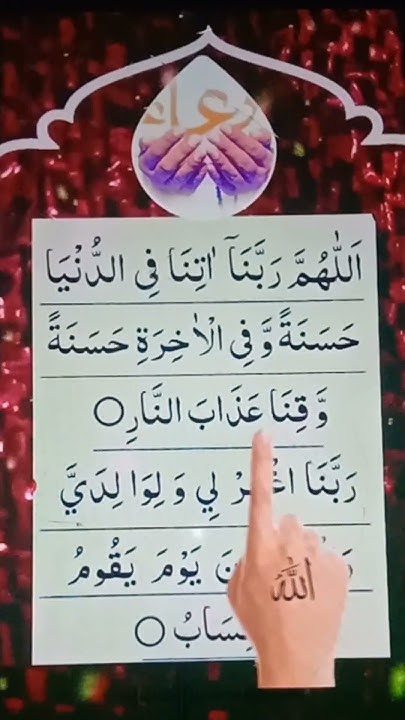 دعاء
اَللّٰهُمَّ رَبَّنَاۤ اٰتِنَا فِي الدُّنْيَا
حَسَنَةً وَّفِي الْاٰخِرَةِ حَسَنَةً
وَّقِنَا عَذَابَ النَّارِ ○
رَبَّنَا لِي وَلِوَالِدَيَّ
يَوْمَ يَقُومُ
○
الله